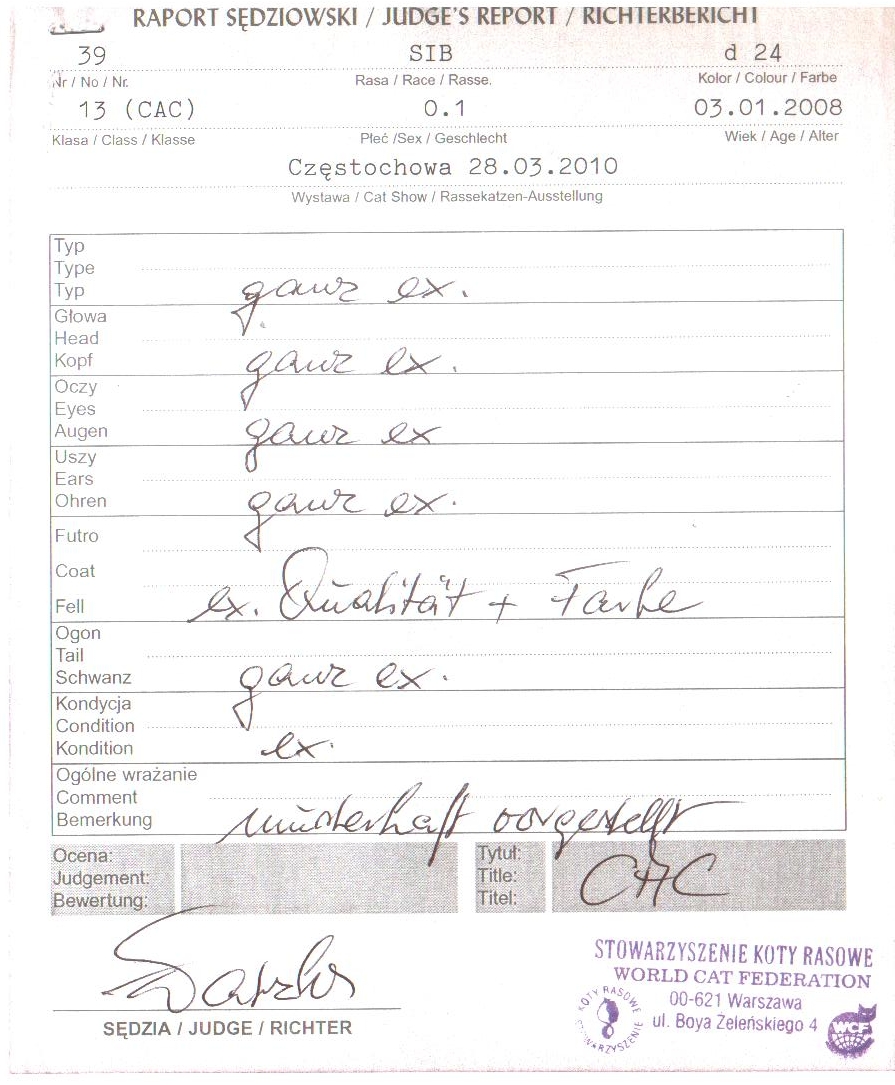 RAPORT SĘDZIOWSKI / JUDGE'S REPORT / RICHTERBERICHT
39 SIB d 24
Nr / No / Nr. Rasa / Race / Rasse. Kolor / Colour / Farbe
13 (CAC) 0.1 03.01.2008
Klasa / Class / Klasse Płeć /Sex / Geschlecht Wiek / Age / Alter
Częstochowa 28.03.2010
Wystawa / Cat Show / Rassekatzen-Ausstellung
Typ
Type
Typ ganz ex.
Głowa
Head
Kopf ganz ex.
Oczy
Eyes
Augen ganz ex
Uszy
Ears
Ohren ganz ex.
Futro
Coat
Fell ex. Qualität + Farbe
Ogon
Tail
Schwanz ganz ex.
Kondycja
Condition
Kondition ex.
Ogólne wrażanie
Comment
Bemerkung musterhaft vorgestellt
Ocena: Tytuł:
Judgement: Title: CAC
Bewertung: Titel:
SĘDZIA / JUDGE / RICHTER
STOWARZYSZENIE KOTY RASOWE
WORLD CAT FEDERATION
00-621 Warszawa
ul. Boya Żeleńskiego 4
KOTY RASOWE
STOWARZYSZENIE
WCF